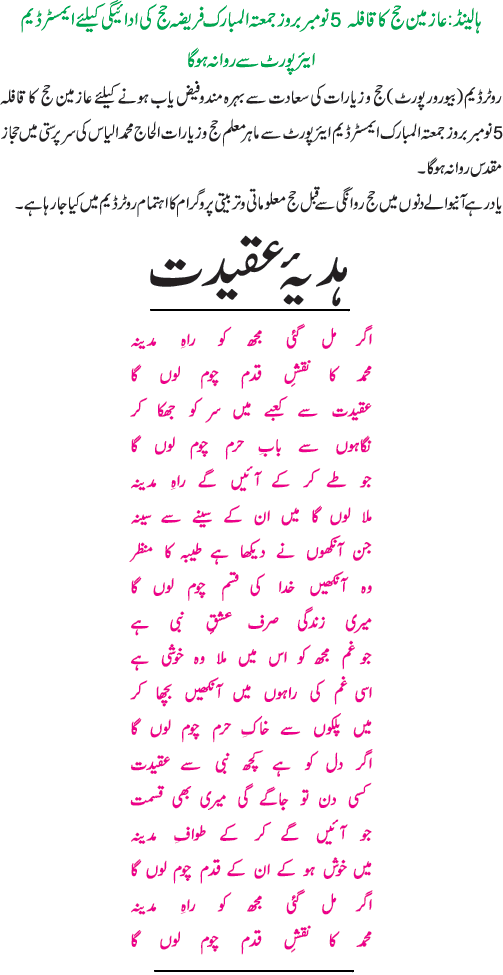 ہالینڈ: عازمین حج کا قافلہ 5 نومبر بروز جمعۃ المبارک فریضہ حج کی ادائیگی کیلئے ایمسٹرڈیم
ایئرپورٹ سے روانہ ہوگا
روٹرڈیم (بیورورپورٹ) حج و زیارات کی سعادت سے بہرہ مند و فیض یاب ہونے کیلئے عازمین حج کا قافلہ
5 نومبر بروز جمعۃ المبارک ایمسٹرڈیم ایئرپورٹ سے ماہر معلم حج و زیارات الحاج محمد الیاس کی سرپرستی میں حجاز
مقدس روانہ ہوگا۔
یاد رہے آنیوالے دنوں میں حج روانگی سے قبل حج معلوماتی و تربیتی پروگرام کا اہتمام روٹرڈیم میں کیا جا رہا ہے۔
ہدیۂ عقیدت
اگر مل گئی مجھ کو راہِ مدینہ
محمد کا نقشِ قدم چوم لوں گا
عقیدت سے کعبے میں سر کو جھکا کر
نگاہوں سے بابِ حرم چوم لوں گا
جو طے کر کے آئیں گے راہِ مدینہ
ملا لوں گا میں ان کے سینے سے سینہ
جن آنکھوں نے دیکھا ہے طیبہ کا منظر
وہ آنکھیں خدا کی قسم چوم لوں گا
میری زندگی صرف عشقِ نبی ہے
جو غم مجھ کو اس میں ملا وہ خوشی ہے
اسی غم کی راہوں میں آنکھیں بچھا کر
میں پلکوں سے خاکِ حرم چوم لوں گا
اگر دل کو ہے کچھ نبی سے عقیدت
کسی دن تو جاگے گی میری بھی قسمت
جو آئیں گے کر کے طوافِ مدینہ
میں خوش ہو کے ان کے قدم چوم لوں گا
اگر مل گئی مجھ کو راہِ مدینہ
محمد کا نقشِ قدم چوم لوں گا